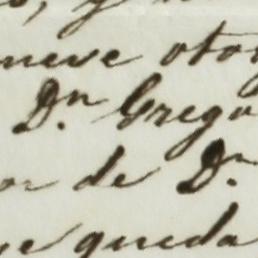 nueve otor
Dn. Grego
or de Dn.
ue queda